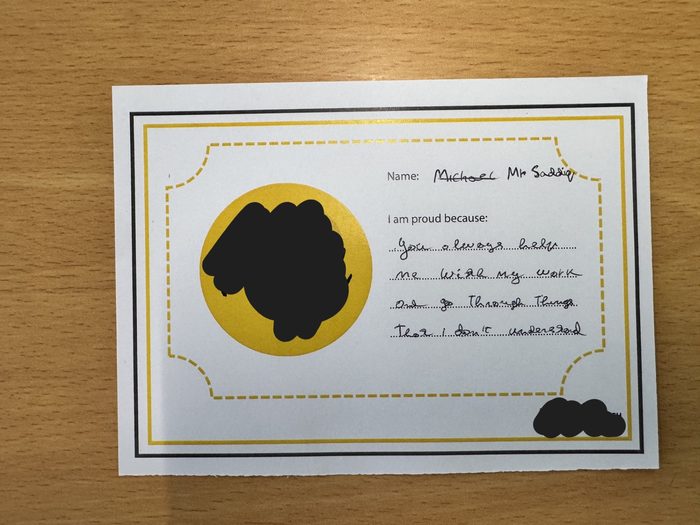 Name: Michael Mr Saddiq
I am proud because:
You always help
me with my work
and go through things
that I don't understand